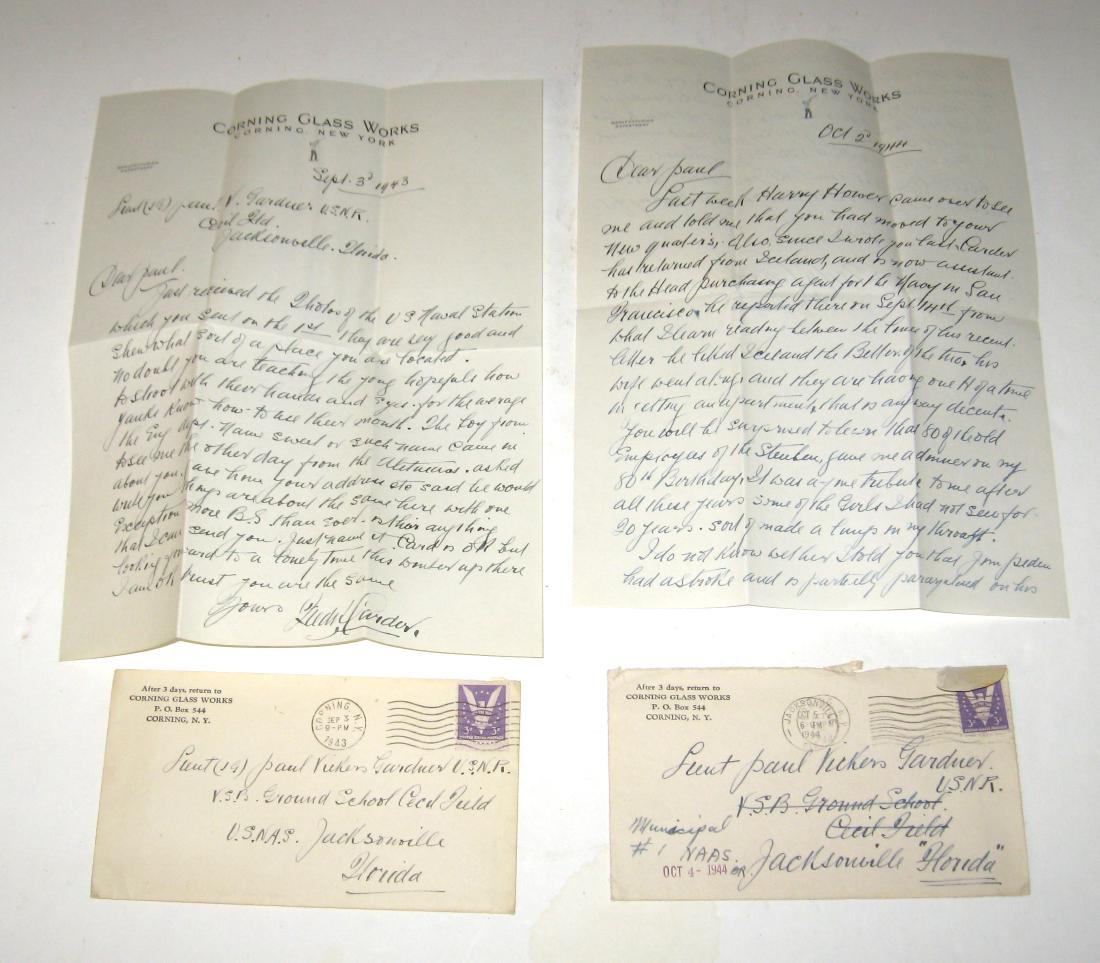 CORNING GLASS WORKS
CORNING, NEW YORK
MANUFACTURING
DEPARTMENT
Sept. 3d 1943
Lieut (JG) paul V. Gardner U.S.N.R.
Cecil Fld
Jacksonville. Florida.
Dear paul.
Just received the Photos of the U S Naval Station
which you sent on the 1st. they are very good and
shew what sort of a place you are located.
No doubt you are teaching the yong hopefuls how
to shoot with their hands and eyes. for the average
yanks know how to use their mouth. The boy from
the Eng dept. Name sweet or such name came in
to see me the other day from the asked
about you. your address etc said he would
write you things are about the same here with one
Exception more B.S than Ever. is their anything
that I can send you. Just name it Card is OK but
looking forward to a lonely time this winter up there
I am trust you are the same
Yours Fredk Carder.
CORNING GLASS WORKS
CORNING, NEW YORK
MANUFACTURING
DEPARTMENT
Oct 2d 1944
Dear paul
Last week Harry Hower came over to see
me and told me that you had moved to your
New quarters. Also, since I wrote you last Carder
has returned from Iceland, and is now assistant
to the Head purchasing agent for the Navy in San
Francisco. he reported there on Sept 14th from
what I learn reading between the lines of his recent
letter he liked Iceland the Better of the two his
wife went along and they are having one H of a time
in getting an apartment that is any way decent.
You will be surprised to learn that 80 of the old
Employees of the Steuben, gave me a dinner on my
80th Birthday. It was a fine tribute to me after
all these years some of the Girls I had not seen for
20 years. sort of made a lump in my throat.
I do not know wether I told you that Jim
had a stroke and is partially paraqulised on his
After 3 days, return to
CORNING GLASS WORKS
P. O. Box 544
CORNING, N. Y.
CORNING N.Y.
SEP 3
9-PM
1943
3¢
UNITED STATES POSTAGE
3¢
Lieut (JG) paul Vickers Gardner U.S.N.R.
V.S.B. Ground School Cecil Field
U.S.N.A.S. Jacksonville
Florida
After 3 days, return to
CORNING GLASS WORKS
P. O. Box 544
CORNING, N. Y.
JACKSONVILLE
OCT 5
6-PM
1944
3¢
Lieut paul Vickers Gardner.
U.S.N.R.
V.S.B Ground School.
Cecil Field
Municipal
#1 NAAS.
OCT 4 - 1944
Jacksonville "Florida"